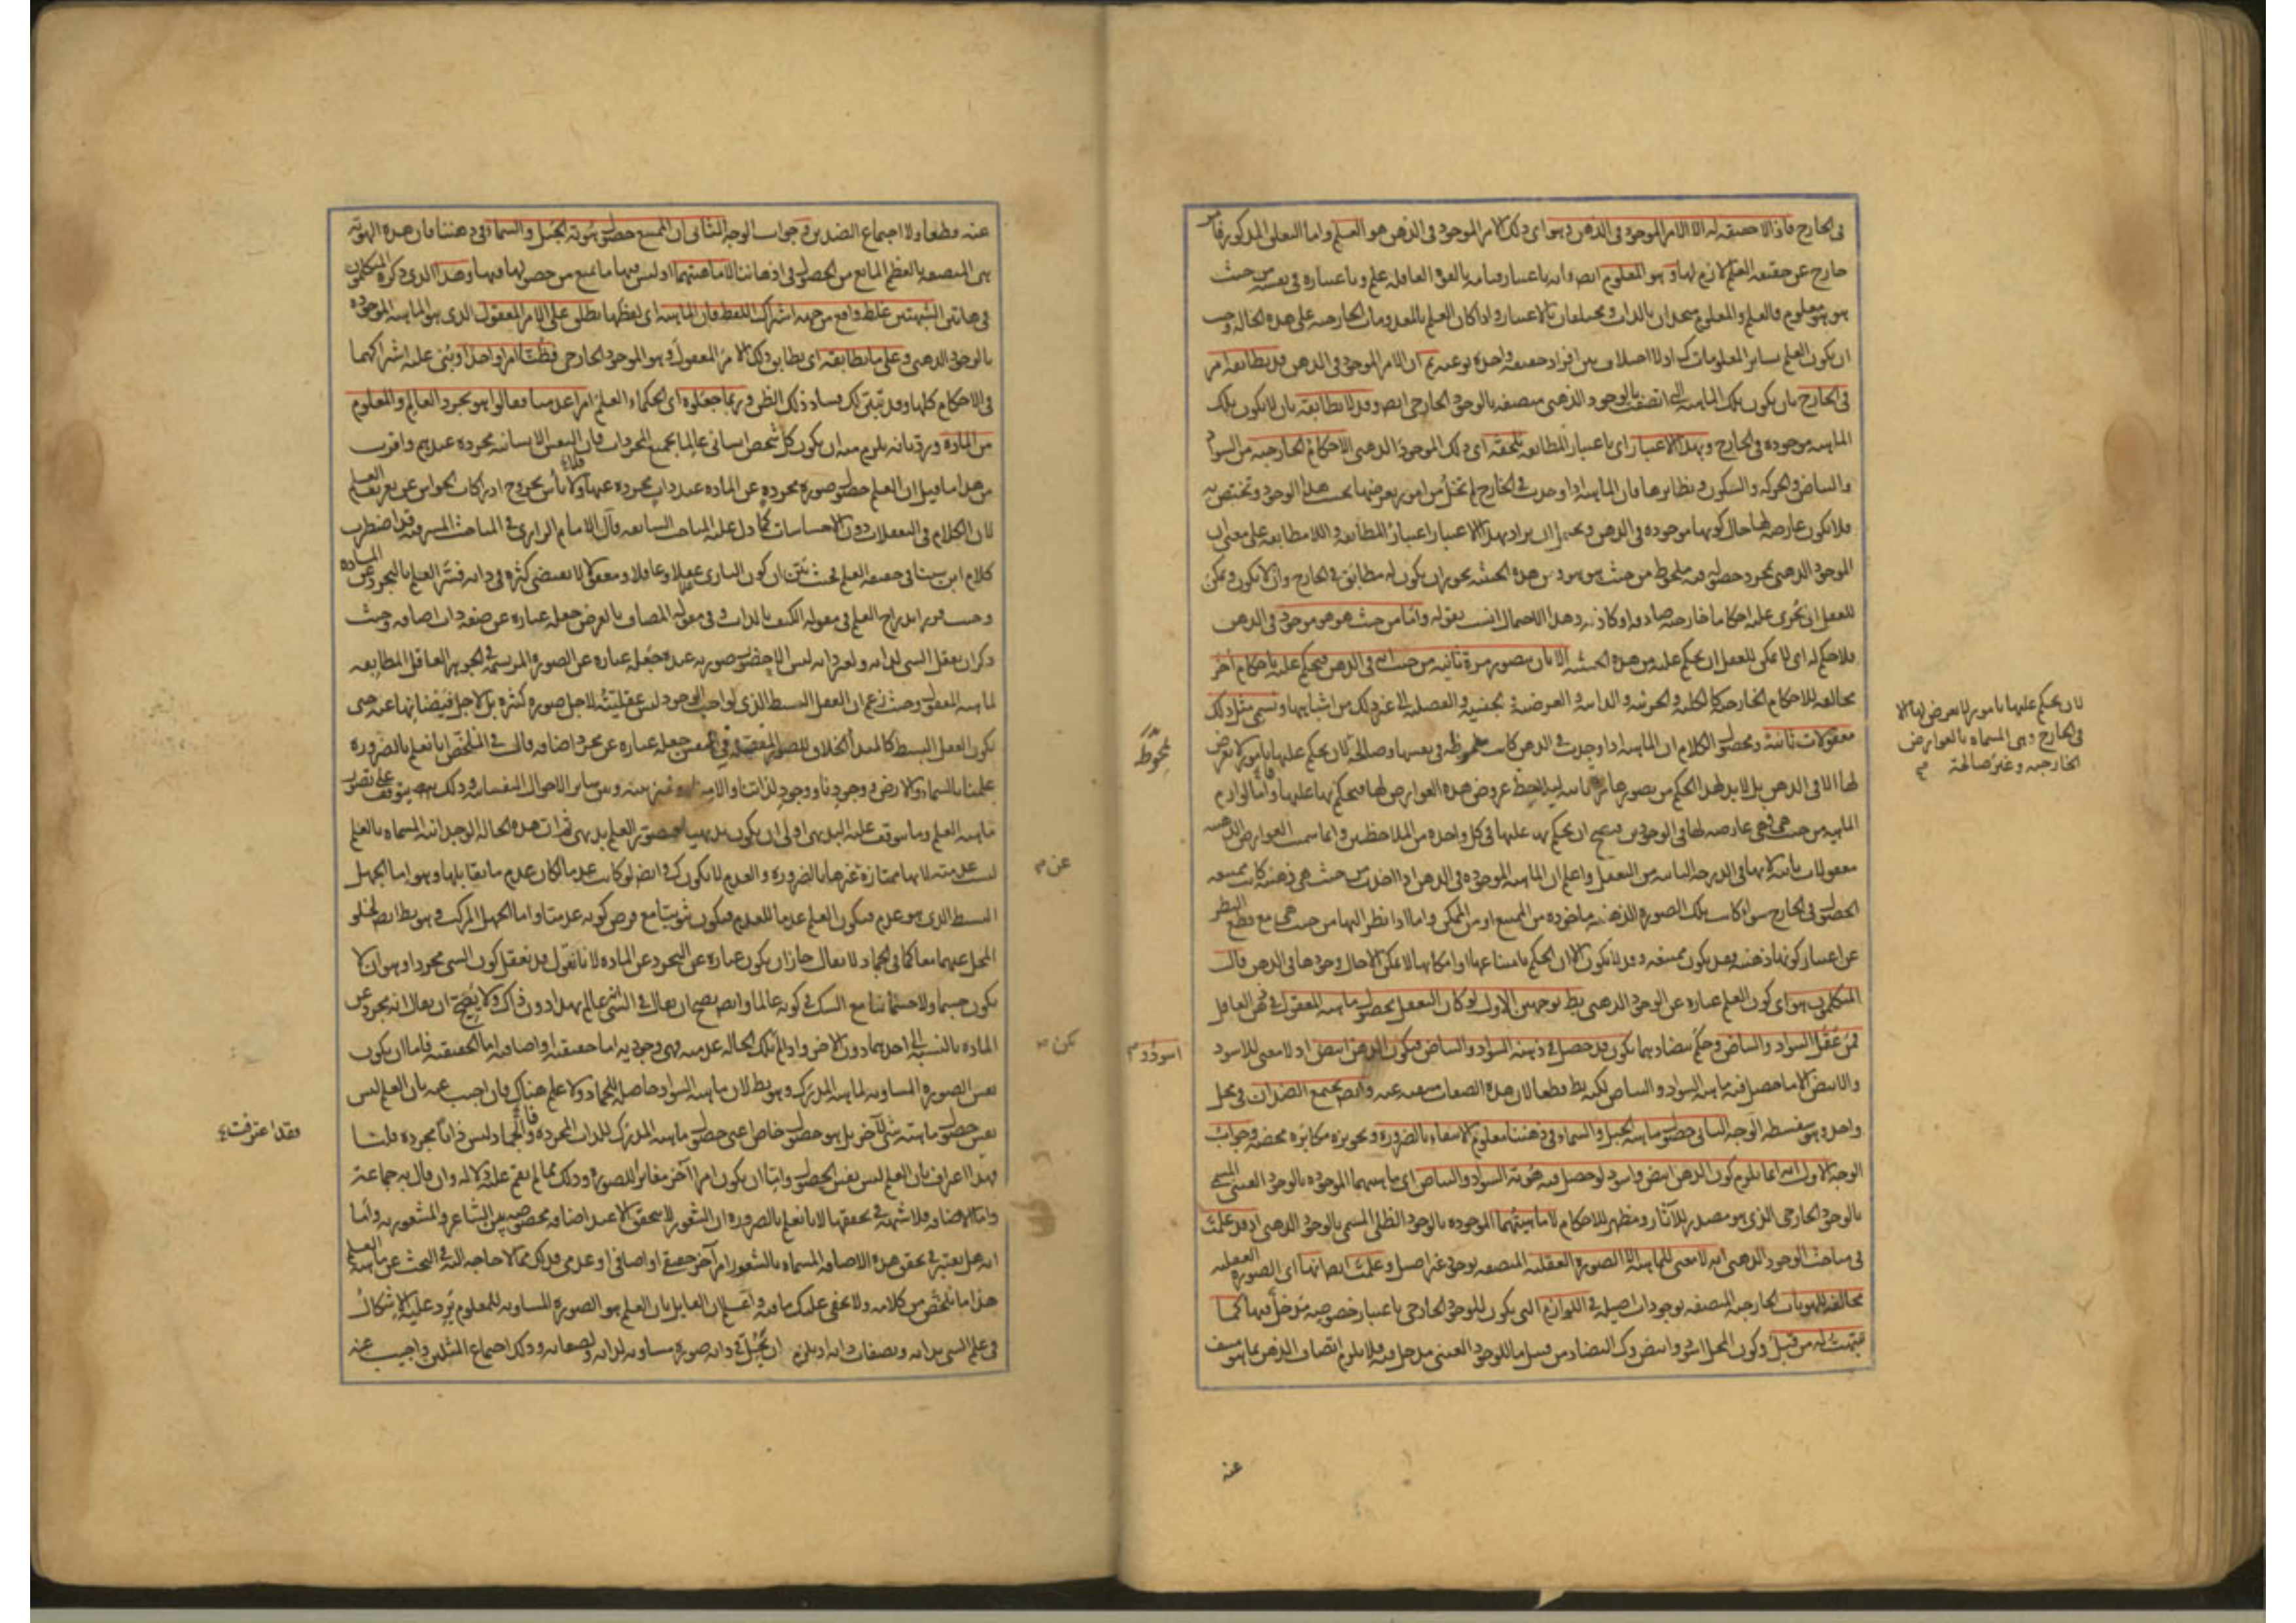 في الخارج فاذًا لا حقيقة له الا الامر الموجود في الذهن وهو اى ذلك الامر الموجود في الذهن هو العلم واما التعلق المذكور فامر
خارج عن حقيقة العلم لازم لها وهو المعلوم ايضا فانه باعتبار قيامه بالقوة العاقلة علم وباعتباره في نفسه من حيث
هو هو معلوم فالعلم والمعلوم متحدان بالذات ومختلفان بالاعتبار واذا كان العلم بالمعدومات الخارجية على هذه الحالة وجب
ان يكون العلم بسائر المعلومات كذلك اذ لا اختلاف بين افراد حقيقة واحدة نوعية ثم ان الامر الموجود في الذهن قد يطابقه امر
في الخارج بان يكون تلك الماهية التى اتصفت بالوجود الذهنى متصفة بالوجود الخارجى ايضا وقد لا يطابقه بان لا يكون تلك
الماهية موجودة في الخارج وبهذا الاعتبار اى باعتبار المطابقة تلحقه اى ذلك الموجود الذهنى الاحكام الخارجية من السواد
والبياض والحركة والسكون ونظائرها فان الماهية اذا وجدت في الخارج لم تخل من امور يعرضها بحسب هذا الوجود وتختص به
فلا تكون عارضة لها حال كونها موجودة في الذهن ويحتمل ان يراد بهذا الاعتبار اعتبار المطابقة واللا مطابقة على معنى ان
الموجود الذهنى بمجرد حصوله فيه ملحوظ من حيث هو هو ومن هذه الحيثية يجوز ان يكون له مطابق في الخارج وان لا يكون ويمكن
للعقل ان يجرى عليه احكاما خارجية صادقة او كاذبة وهذا الاحتمال انسب بقوله واما من حيث هو هو موجود في الذهن
فلا حكم له اى لا يمكن للعقل ان يحكم عليه من هذه الحيثية الا بان يتصور مرة ثانية من حيث انه في الذهن فيحكم عليه باحكام اخر
مخالفة للاحكام الخارجية كالكلية والجزئية والذاتية والعرضية والجنسية والفصلية الى غير ذلك من اشباهها وتسمى مثل ذلك
معقولات ثانية ومحصول الكلام ان الماهية اذا وجدت في الذهن كانت ملحوظة في نفسها وصالحة لان يحكم عليها بامور لا تعرض
لها الا في الذهن بل لا بد لهذا الحكم من تصورها مرة ثانية ليلاحظ عروض هذه العوارض لها فيحكم بها عليها واما لوازم
الماهية من حيث هى هى عارضة لها في الوجودين فيصح ان يحكم بها عليها في كل واحدة من الملاحظتين وانما سميت العوارض الذهنية
معقولات ثانية لانها في الدرجة الثانية من التعقل واعلم ان الماهية الموجودة في الذهن اذا اخذت من حيث هى ذهنية كانت ممتنعة
الحصول في الخارج سواء كانت تلك الصورة الذهنية ماخوذة من الممتنع او من الممكن واما اذا نظر اليها من حيث هى مع قطع النظر
عن اعتبار كونها ذهنية فقد يكون ممتنعة وقد لا تكون الا ان الحكم بامتناعها او امكانها لا يمكن الا حال وجودها في الذهن قالت
المتكلمون هو اى كون العلم عبارة عن الوجود الذهنى بط بوجهين الاول لو كان التعقل بحصول ماهية المعقول في ذهن العاقل
فمن عقل السواد والبياض وحكم بتضادهما يكون قد حصل في ذهنه السواد والبياض فيكون الذهن ابيض اذ لا معنى للاسود
والابيض الا ما حصل فيه ماهية السواد والبياض لكنه بط قطعا لان هذه الصفات منتفية عنه وايضا يجتمع الضدان في محل
واحد وهو سفسطة الوجه الثانى حصول ماهية الجبل والسماء في ذهننا معلوم الانتفاء بالضرورة وتجويزه مكابرة محضة وجواب
الوجه الاول انه انما يلزم كون الذهن ابيض واسود لو حصل فيه هوية السواد والبياض اى ماهيتهما الموجودة بالوجود العينى المسمى
بالوجود الخارجى الذى هو مصدر للآثار ومظهر للاحكام لا ماهيتهما الموجودة بالوجود الظلى المسمى بالوجود الذهنى اذ قد علمت
في مباحث الوجود الذهنى انه لا معنى للماهية الا الصورة العقلية المتصفة بوجود غير اصيل وعلمت ايضا انها اى الصورة العقلية
مخالفة للهويات الخارجية المتصفة بوجودات اصيلة في اللوازم التى يكون للوجود الخارجى باعتبار خصوصيته مدخل فيها كما
نبهت له من قبل وكون المحل اسود وابيض وكذا التضاد من قبيل ما للوجود العينى مدخل فيه فلا يلزم اتصاف الذهن بما هو منتف
عنه
لان يحكم عليها بامور لا تعرض لها الا
في الخارج وهى المسماة بالعوارض
الخارجية وغير صالحة
ملحوظة
اسود و
عنه قطعا ولا اجتماع الضدين وجواب الوجه الثانى ان الممتنع حصول هوية الجبل والسماء في ذهننا فان هذه الهوية
هى المتصفة بالعظم المانع من الحصول في اذهاننا لا ماهيتهما اذ ليس فيها ما يمنع من حصولها فيها وهذا الذى ذكره المتكلمون
في هاتين الشبهتين غلط واقع من جهة اشتراك اللفظ فان الماهية اى لفظها يطلق على الامر المعقول الذى هو الماهية الموجودة
بالوجود الذهنى وعلى ما يطابقه اى يطابق ذلك الامر المعقول وهو الموجود الخارجى فظنا امرا واحدا وبنى عليه اشتراكهما
في الاحكام كلها وقد تبين لك فساد ذلك الظن وربما جعلوه اى الحكماء العلم امرا عدميا فقالوا هو تجرد العالم والمعلوم
من المادة ورد بانه يلزم منه ان يكون كل شخص انسانى عالما بجميع المجردات فان النفس الانسانية مجردة عندهم واقرب
من هذا ما قيل ان العلم حصول صورة مجردة عن المادة عند ذات مجردة عنها ولا بأس بخروج ادراكات الحواس عن تعريف العلم
لان الكلام في التعقلات دون الاحساسات كما دل عليه المباحث السابقة قال الامام الرازى في المباحث المشرقية قد اضطرب
كلام ابن سينا في حقيقة العلم فحيث بين ان كون البارى عقلا وعاقلا ومعقولا لا يقتضى كثرة في ذاته فسر العلم بالتجرد عن المادة
وحيث قرر اندراج العلم في مقولة الكيف بالذات وفي مقولة المضاف بالعرض جعله عبارة عن صفة ذات اضافة وحيث
ذكر ان تعقل الشئ لذاته ولغير ذاته ليس الا حضور صورته عنده جعله عبارة عن الصورة المرتسمة في الجوهر العاقل المطابقة
لماهية المعقول وحيث زعم ان العقل البسيط الذى لواجب الوجود ليس عقليته لاجل صورة كثيرة بل لاجل فيضانها عنه حتى
يكون العقل البسيط كالمبدأ الخلاق للصور المفصلة في النفس جعله عبارة عن مجرد اضافة وقال في الملخص انا نعلم بالضرورة
علمنا بالسماء والارض ووجودنا ووجود لذاتنا وآلامنا ونميز بينه وبين سائر الاحوال النفسانية وذلك يتوقف على تصور
ماهية العلم وما يتوقف عليه البديهى اولى ان يكون بديهيا فتصور العلم بديهى ثم ان هذه الحالة الوجدانية المسماة بالعلم
ليست عدمية لانها ممتازة عن غيرها بالضرورة والعدم لا يكون كذلك وايضا لو كانت عدما لكان عدم ما يقابلها وهو اما الجهل
البسيط الذى هو عدم فيكون العلم عدما للعدم فيكون ثبوتيا مع فرض كونه عدميا واما الجهل المركب وهو بط ايضا لخلو
المحل عنهما معا كما في الجماد لا يقال جاز ان يكون عبارة عن التجرد عن المادة لانا نقول قد نعقل كون الشئ مجردا وهو ان لا
يكون جسما ولا جسمانيا مع الشك في كونه عالما وايضا يصح ان يقال في الشئ انه عالم بهذا دون ذاك ولا يصح ان يقال انه مجرد عن
المادة بالنسبة الى احدهما دون الآخر واذا لم تكن الحالة عدمية فهى وجودية اما حقيقية او اضافية اما الحقيقية فاما ان يكون
نفس الصورة المساوية لماهية المدرك وهو بط لان ماهية السواد حاصلة للجماد ولا علم هناك فان اجيب عنه بان العلم ليس
نفس حصول ماهية شئ لآخر بل هو حصول خاص اعنى حصول ماهية المدرك للذات المجردة والجماد ليس ذاتا مجردة قلنا
فهذا اعتراف بان العلم ليس نفس الحصول واما ان يكون امرا آخر مغايرا للصورة وذلك مما لم يقم عليه دلالة وان قال به جماعة
واما الاضافية فلا شبهة في تحققها لانا نعلم بالضرورة ان الشعور لا يتحقق الا عند اضافة مخصوصة بين الشاعر والمشعور به واما
انه هل يعتبر في تحقق هذه الاضافة المسماة بالشعور امر آخر حقيقى او اضافى او عدمى فذلك مما لا حاجة اليه في البحث عن ماهية العلم
هذا ما تلخص من كلامه ولا يخفى عليك ما فيه واعلم ان القائل بان العلم هو الصورة المساوية للمعلوم يرد عليه الاشكال
في علم الشئ بذاته وبصفات ذاته اذ يلزم ان يحل في ذاته صورة مساوية لذاته ولصفاته وذلك اجتماع المثلين واجيب عنه
عن
تكن
فقد اعترفت